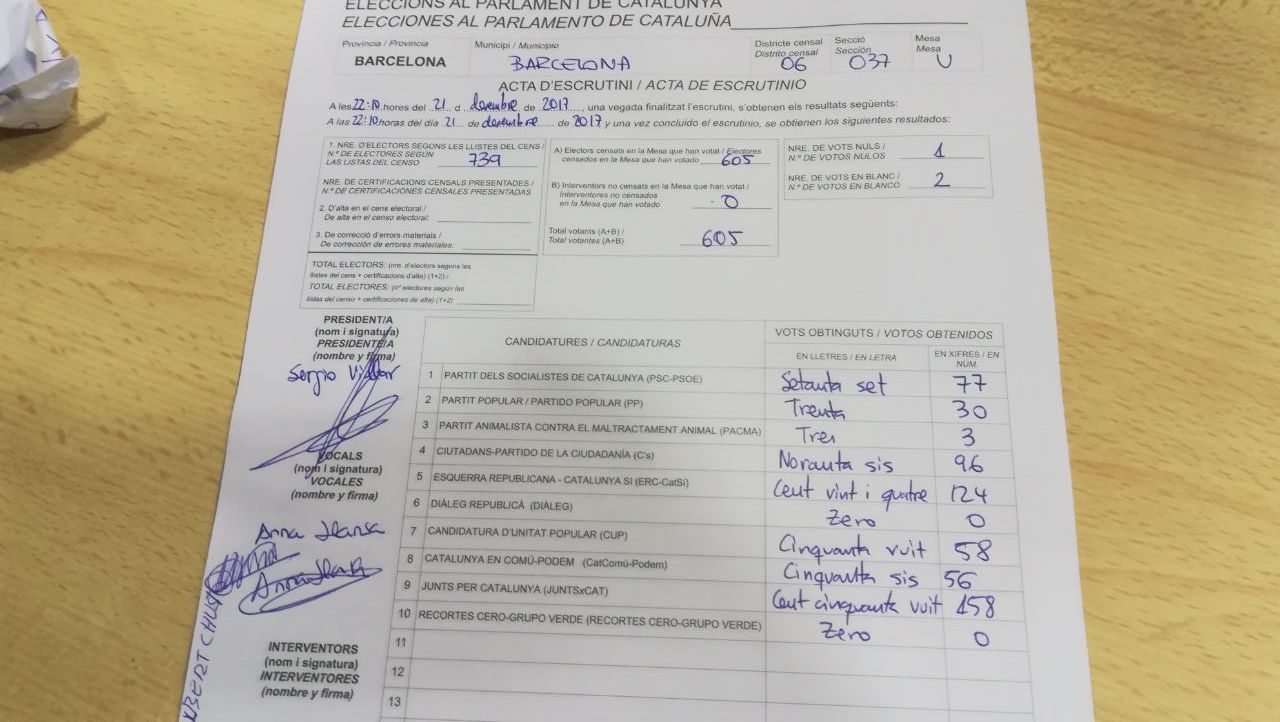 ELECCIONS AL PARLAMENT DE CATALUNYA
ELECCIONES AL PARLAMENTO DE CATALUÑA
Província / Provincia
BARCELONA
Municipi / Municipio
BARCELONA
Districte censal
Distrito censal
06
Secció
Sección
037
Mesa
Mesa
U
ACTA D'ESCRUTINI / ACTA DE ESCRUTINIO
A les 22:10 hores del 21 d desembre de 2017, una vegada finalitzat l'escrutini, s'obtenen els resultats següents:
A las 22:10 horas del día 21 de desembre de 2017 y una vez concluido el escrutinio, se obtienen los siguientes resultados:
1. NRE. D'ELECTORS SEGONS LES LLISTES DEL CENS /
N.º DE ELECTORES SEGÚN
LAS LISTAS DEL CENSO 739
NRE. DE CERTIFICACIONS CENSALS PRESENTADES /
N.º DE CERTIFICACIONES CENSALES PRESENTADAS
2. D'alta en el cens electoral /
De alta en el censo electoral:
3. De correcció d'errors materials /
De corrección de errores materiales:
TOTAL ELECTORS: (nre. d'electors segons les
llistes del cens + certificacions d'alta) (1+2) /
TOTAL ELECTORES: (nº electores según las
listas del censo + certificaciones de alta) (1+2)
A) Electors censats en la Mesa que han votat / Electores
censados en la Mesa que han votado 605
B) Interventors no censats en la Mesa que han votat /
Interventores no censados
en la Mesa que han votado 0
Total votants (A+B) /
Total votantes (A+B) 605
NRE. DE VOTS NULS /
N.º DE VOTOS NULOS 1
NRE. DE VOTS EN BLANC /
N.º DE VOTOS EN BLANCO 2
PRESIDENT/A
(nom i signatura)
PRESIDENTE/A
(nombre y firma)
Sergio Villar
VOCALS
(nom i signatura)
VOCALES
(nombre y firma)
Anna
Anna
INTERVENTORS
(nom i signatura)
INTERVENTORES
(nombre y firma)
CANDIDATURES / CANDIDATURAS
VOTS OBTINGUTS / VOTOS OBTENIDOS
EN LLETRES / EN LETRA
EN XIFRES / EN
NÚM.
1 PARTIT DELS SOCIALISTES DE CATALUNYA (PSC-PSOE) Setanta set 77
2 PARTIT POPULAR / PARTIDO POPULAR (PP) Trenta 30
3 PARTIT ANIMALISTA CONTRA EL MALTRACTAMENT ANIMAL (PACMA) Tres 3
4 CIUTADANS-PARTIDO DE LA CIUDADANÍA (C's) Noranta sis 96
5 ESQUERRA REPUBLICANA - CATALUNYA SÍ (ERC-CatSí) Cent vint i quatre 124
6 DIÀLEG REPUBLICÀ (DIÀLEG) Zero 0
7 CANDIDATURA D'UNITAT POPULAR (CUP) Cinquanta vuit 58
8 CATALUNYA EN COMÚ-PODEM (CatComú-Podem) Cinquanta sis 56
9 JUNTS PER CATALUNYA (JUNTSxCAT) Cent cinquanta vuit 158
10 RECORTES CERO-GRUPO VERDE (RECORTES CERO-GRUPO VERDE) Zero 0
11
12
13